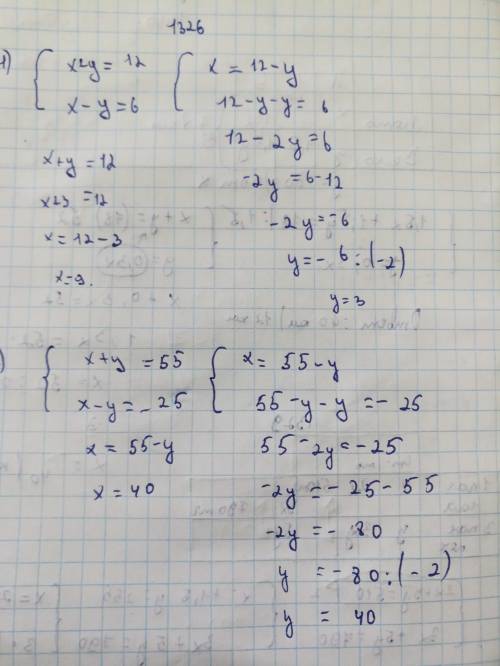 1326
1) { x+y = 12 { x = 12-y
x-y = 6 12-y-y = 6
12-2y = 6
x+y = 12 -2y = 6-12
x+3 = 12 -2y = -6
x = 12-3 y = -6:(-2)
x = 9. y = 3
) { x+y = 55 { x = 55-y
x-y = -25 55-y-y = -25
x = 55-y 55-2y = -25
x = 40 -2y = -25-55
-2y = -80
y = -80:(-2)
y = 40